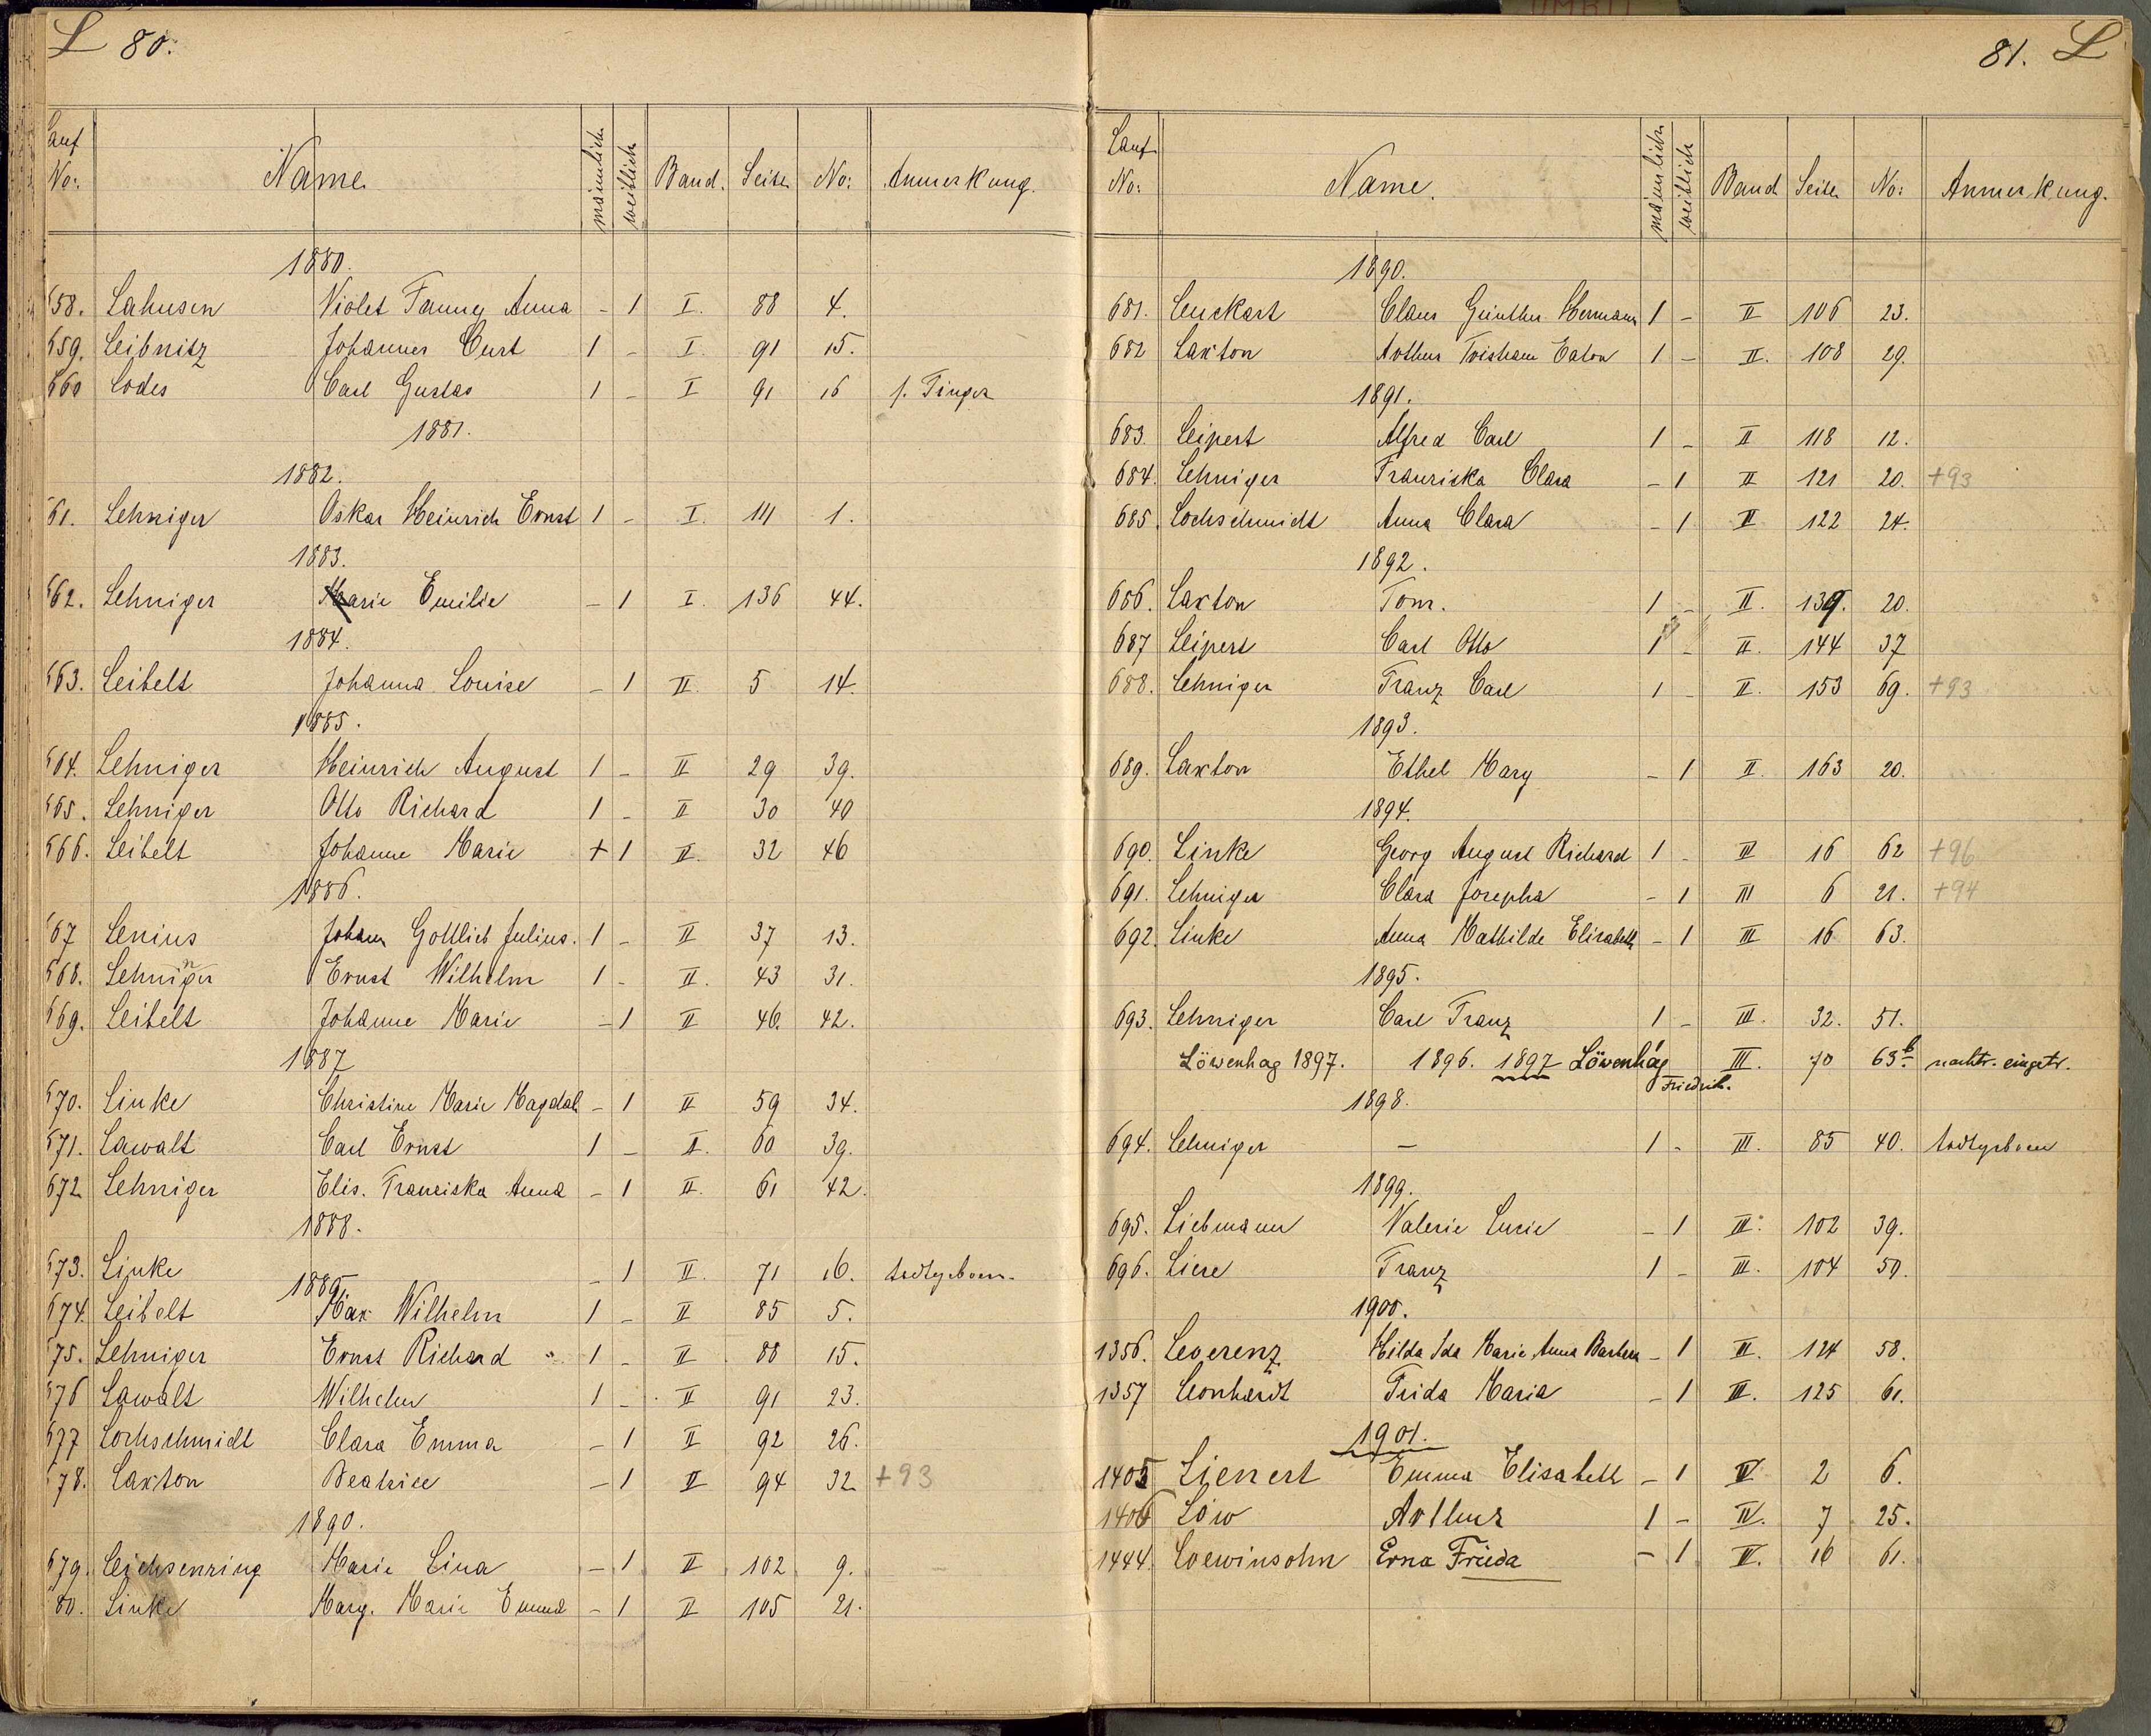 L 80.
Lauf No: Name. männlich weiblich Band. Seite No: Anmerkung.
1880.
658. Lahusen Violet Fanny Anna - 1 I. 88 4.
659. Leibnitz Johannes Curt 1 - I. 91 15.
660 Lodes Carl Gustav 1 - I 91 16 f. Finger
1881.
1882.
61. Lehniger Oskar Heinrich Ernst 1 - I. 111 1.
1883.
662. Lehniger Marie Emilie - 1 I. 136 44.
1884.
663. Leibelt Johanna Louise - 1 II. 5 14.
1885.
664. Lehniger Heinrich August 1 - II 29 39.
665. Lehniger Otto Richard 1 - II 30 40
666. Leibelt Johanne Marie + 1 II. 32 46
1886.
667 Lenius Johann Gottlieb Julius. 1 - II 37 13.
668. Lehniger Ernst Wilhelm 1 - II. 43 31.
669. Leibelt Johanne Marie - 1 II 46. 42.
1887
670. Linke Christine Marie Magdal - 1 II 59 34.
671. Lawalt Carl Ernst 1 - II. 60 39.
672 Lehniger Elis. Franziska Anna - 1 II. 61 42.
1888.
673. Linke - 1 II. 71 16. todtgeboren.
1889.
674. Leibelt Max Wilhelm 1 - II 85 5.
675. Lehniger Ernst Richard 1 - II 88 15.
676 Lawalt Wilhelm 1 - II 91 23.
677 Lochschmidt Clara Emma - 1 II 92 26.
678. Laxton Beatrice - 1 II 94 32 +93
1890.
679. Leichsenring Marie Lina - 1 II 102 9.
80. Linke Marg. Marie Emma - 1 II 105 21.
81. L
Lauf No: Name. männlich weiblich Band Seite No: Anmerkung.
1890.
681. Leuckart Claus Günther Hermann 1 - II 106 23.
682 Laxton Arthur Eaton 1 - II. 108 29.
1891.
683. Leipert Alfred Carl 1 - II 118 12.
684. Lehniger Franziska Clara - 1 II 121 20. +93
685. Lochschmidt Anna Clara - 1 II 122 24.
1892.
686. Laxton Tom. 1 - II. 139. 20.
687 Leipert Carl Otto 1 - II. 144 37
688. Lehniger Franz Carl 1 - II. 153 69. +93
1893.
689. Laxton Ethel Mary - 1 II. 163 20.
1894.
690. Linke Georg August Richard 1 - III 16 62 +96
691. Lehniger Clara Josepha - 1 III 6 21. +94
692. Linke Anna Mathilde Elisabeth - 1 III 16 63.
1895.
693. Lehniger Carl Franz 1 - III. 32. 51.
Löwenhag 1897. 1896. 1897 Löwenhag III. 70 63b nachtr. eingetr.
Friedrich.
1898.
694. Lehniger - 1 - III. 85 40. todtgeboren
1899.
695. Liebmann Valerie Lucie - 1 III. 102 39.
696. Liese Franz 1 - III. 104 50.
1900.
1356. Leverenz Hilda Ida Marie Anna Barbara - 1 III. 124 58.
1357 Leonhardt Frida Maria - 1 III. 125 61.
1901.
1405 Lienert Emma Elisabeth - 1 IV 2 6.
1406 Löw Arthur 1 - IV. 7 25.
1444. Loewinsohn Erna Frieda - 1 IV. 16 61.